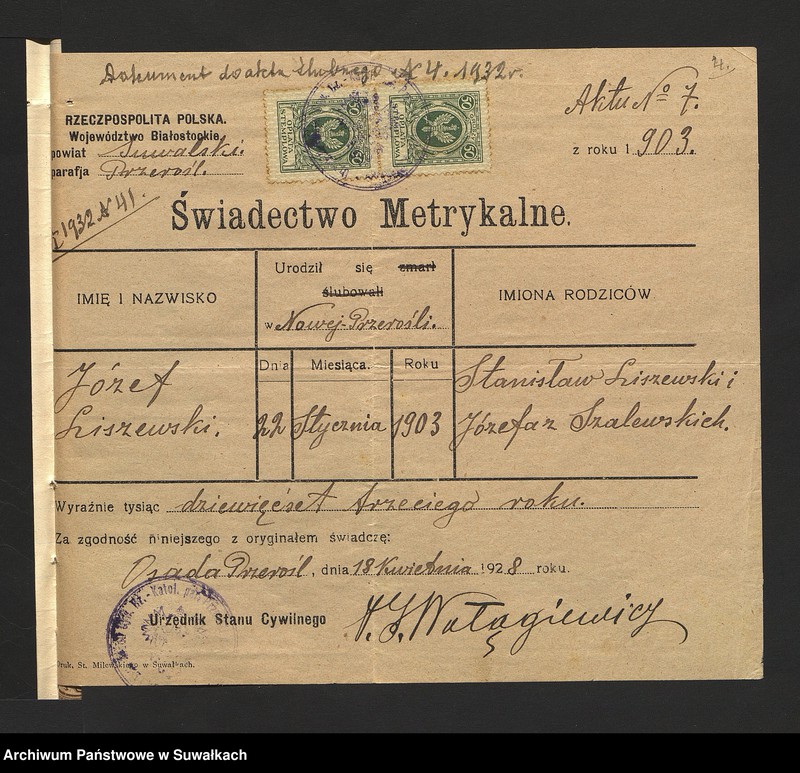 Dokument do aktu ślubnego N 4. 1932 r.
4.
RZECZPOSPOLITA POLSKA.
Województwo Białostockie
powiat Suwalski.
parafja Przerośl.
Aktu № 7.
z roku 1903.
OPŁATA STEMPLOWA
50
OPŁATA STEMPLOWA
50
1932 N 41.
Świadectwo Metrykalne.
IMIĘ I NAZWISKO
Urodził się zmarł
ślubowali
w Nowej-Przerośli.
IMIONA RODZICÓW
Dnia
Miesiąca.
Roku
Józef
Liszewski.
22
Stycznia
1903
Stanisław Liszewski i
Józefa z Szalewskich.
Wyraźnie tysiąc dziewięćset trzeciego roku.
Za zgodność niniejszego z oryginałem świadczę:
Osada Przerośl, dnia 18 Kwietnia 1928 roku.
Urzędnik Stanu Cywilnego
Druk. St. Milewskiego w Suwałkach.
Archiwum Państwowe w Suwałkach